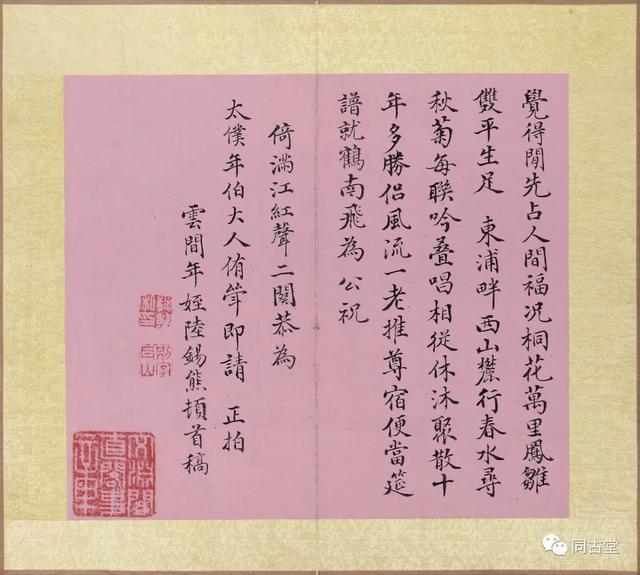 覺得閒先占人間福况桐花萬里鳳雛
雙平生足 東浦畔西山麓行春水尋
秋菊每聯吟叠唱相從休沐聚散十
年多勝侣風流一老推尊宿便當筵
譜就鶴南飛為公祝
倚滿江紅聲二闋恭為
太僕年伯大人侑觴即請 正拍
雲間年姪陸錫熊頓首稿
同古堂